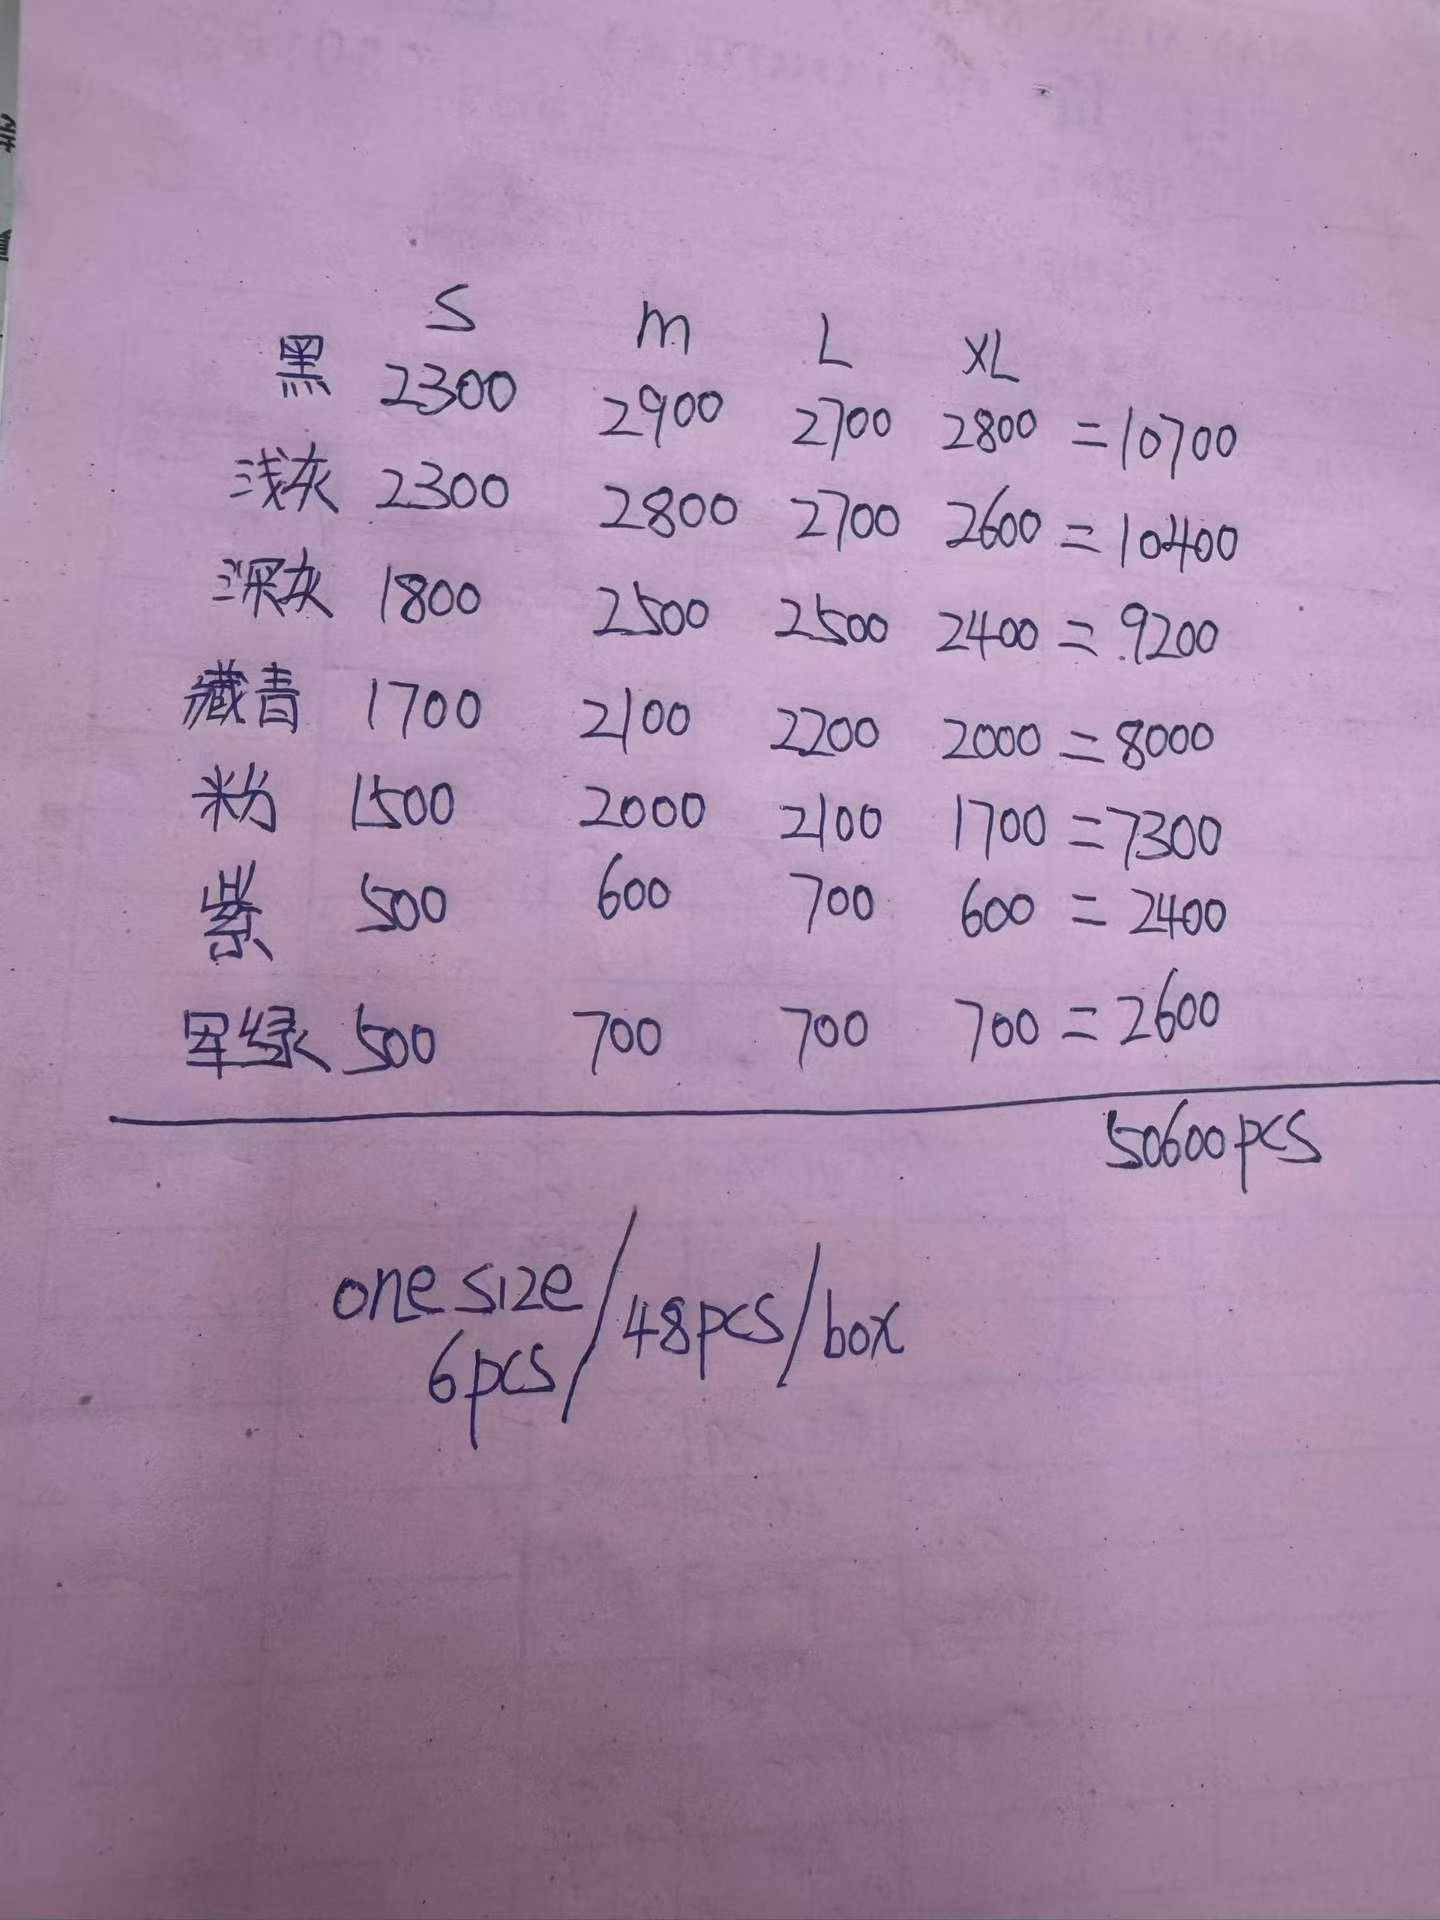 S m L XL
黑 2300 2900 2700 2800 = 10700
浅灰 2300 2800 2700 2600 = 10400
深灰 1800 2500 2500 2400 = 9200
藏青 1700 2100 2200 2000 = 8000
粉 1500 2000 2100 1700 = 7300
紫 500 600 700 600 = 2400
军绿 500 700 700 700 = 2600
50600pcs
one size / 48pcs / box
6pcs